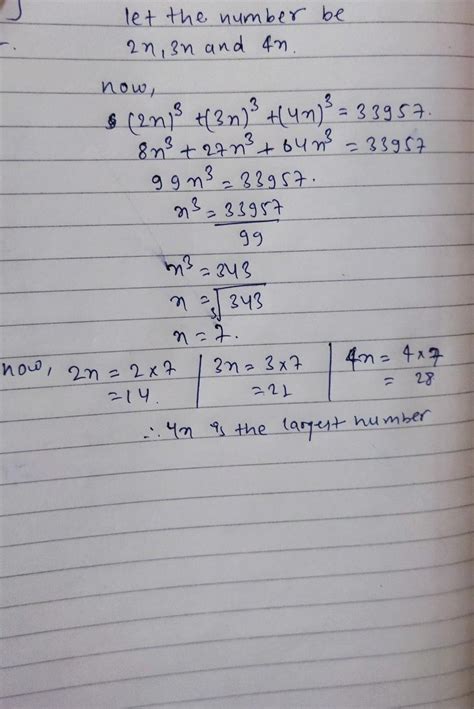 let the number be
2n, 3n and 4n.
now,
(2n)³ + (3n)³ + (4n)³ = 33957.
8n³ + 27n³ + 64n³ = 33957
99n³ = 33957.
n³ = 33957
99
n³ = 343
n = ³√343
n = 7.
now, 2n = 2×7 | 3n = 3×7 | 4n = 4×7
= 14. | = 21 | = 28
∴ 4n is the largest number